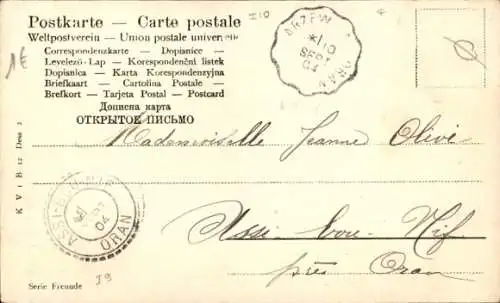 Postkarte — Carte postale
Weltpostverein — Union postale univer
Correspondenzkarte — Dopisnice —
Levelező-Lap — Korespondenční listek
Dopisnica — Karta Korespondenzyjna
Briefkaart — Cartolina Postale —
Brefkort — Tarjeta Postal — Postcard
Дописна карта
ОТКРЫТОЕ ПИСЬМО
1E
ARZEW
10
SEPT
04
ORAN
Mademoiselle Jeanne Olive
Assi-bou-Nif
près Oran
ASSI-BOU-NIF
04
ORAN
K V i B 12 Dess 2
Serie Freunde